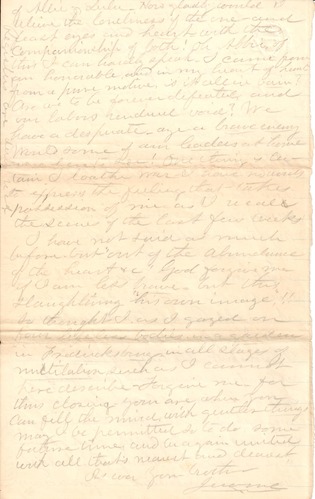 of Allie & Lulu. How gladly would I
relieve the loneliness of the one and
feast eyes and heart with the
companionship of both. Oh Allie
this I can hardly speak. I came from
an honorable, and in my heart of hearts
from a pure motive is
Are we to be forever defeated and
our labors rendered void? We
have a desperate, aye a brave enemy
some of our leaders at home
thing is cer-
tain I loathe war I have no words
to express the feeling that takes
possession of me as I recall
the scenes of the last few weeks
I have not said as much
before but out of the abundance
of the heart &c God forgive me
if I am less brave but this
slaughtering his own image. It
is thought I as I gazed on
in a garden
in Fredericksburg in all stages of
mutilation such as I cannot
here describe. Forgive me for
thus closing. You are where you
can fill the mind with gentler things
may I be permitted so to do some
future time and be again united
with all that's nearest and dearest
As ever your brother
Jerome